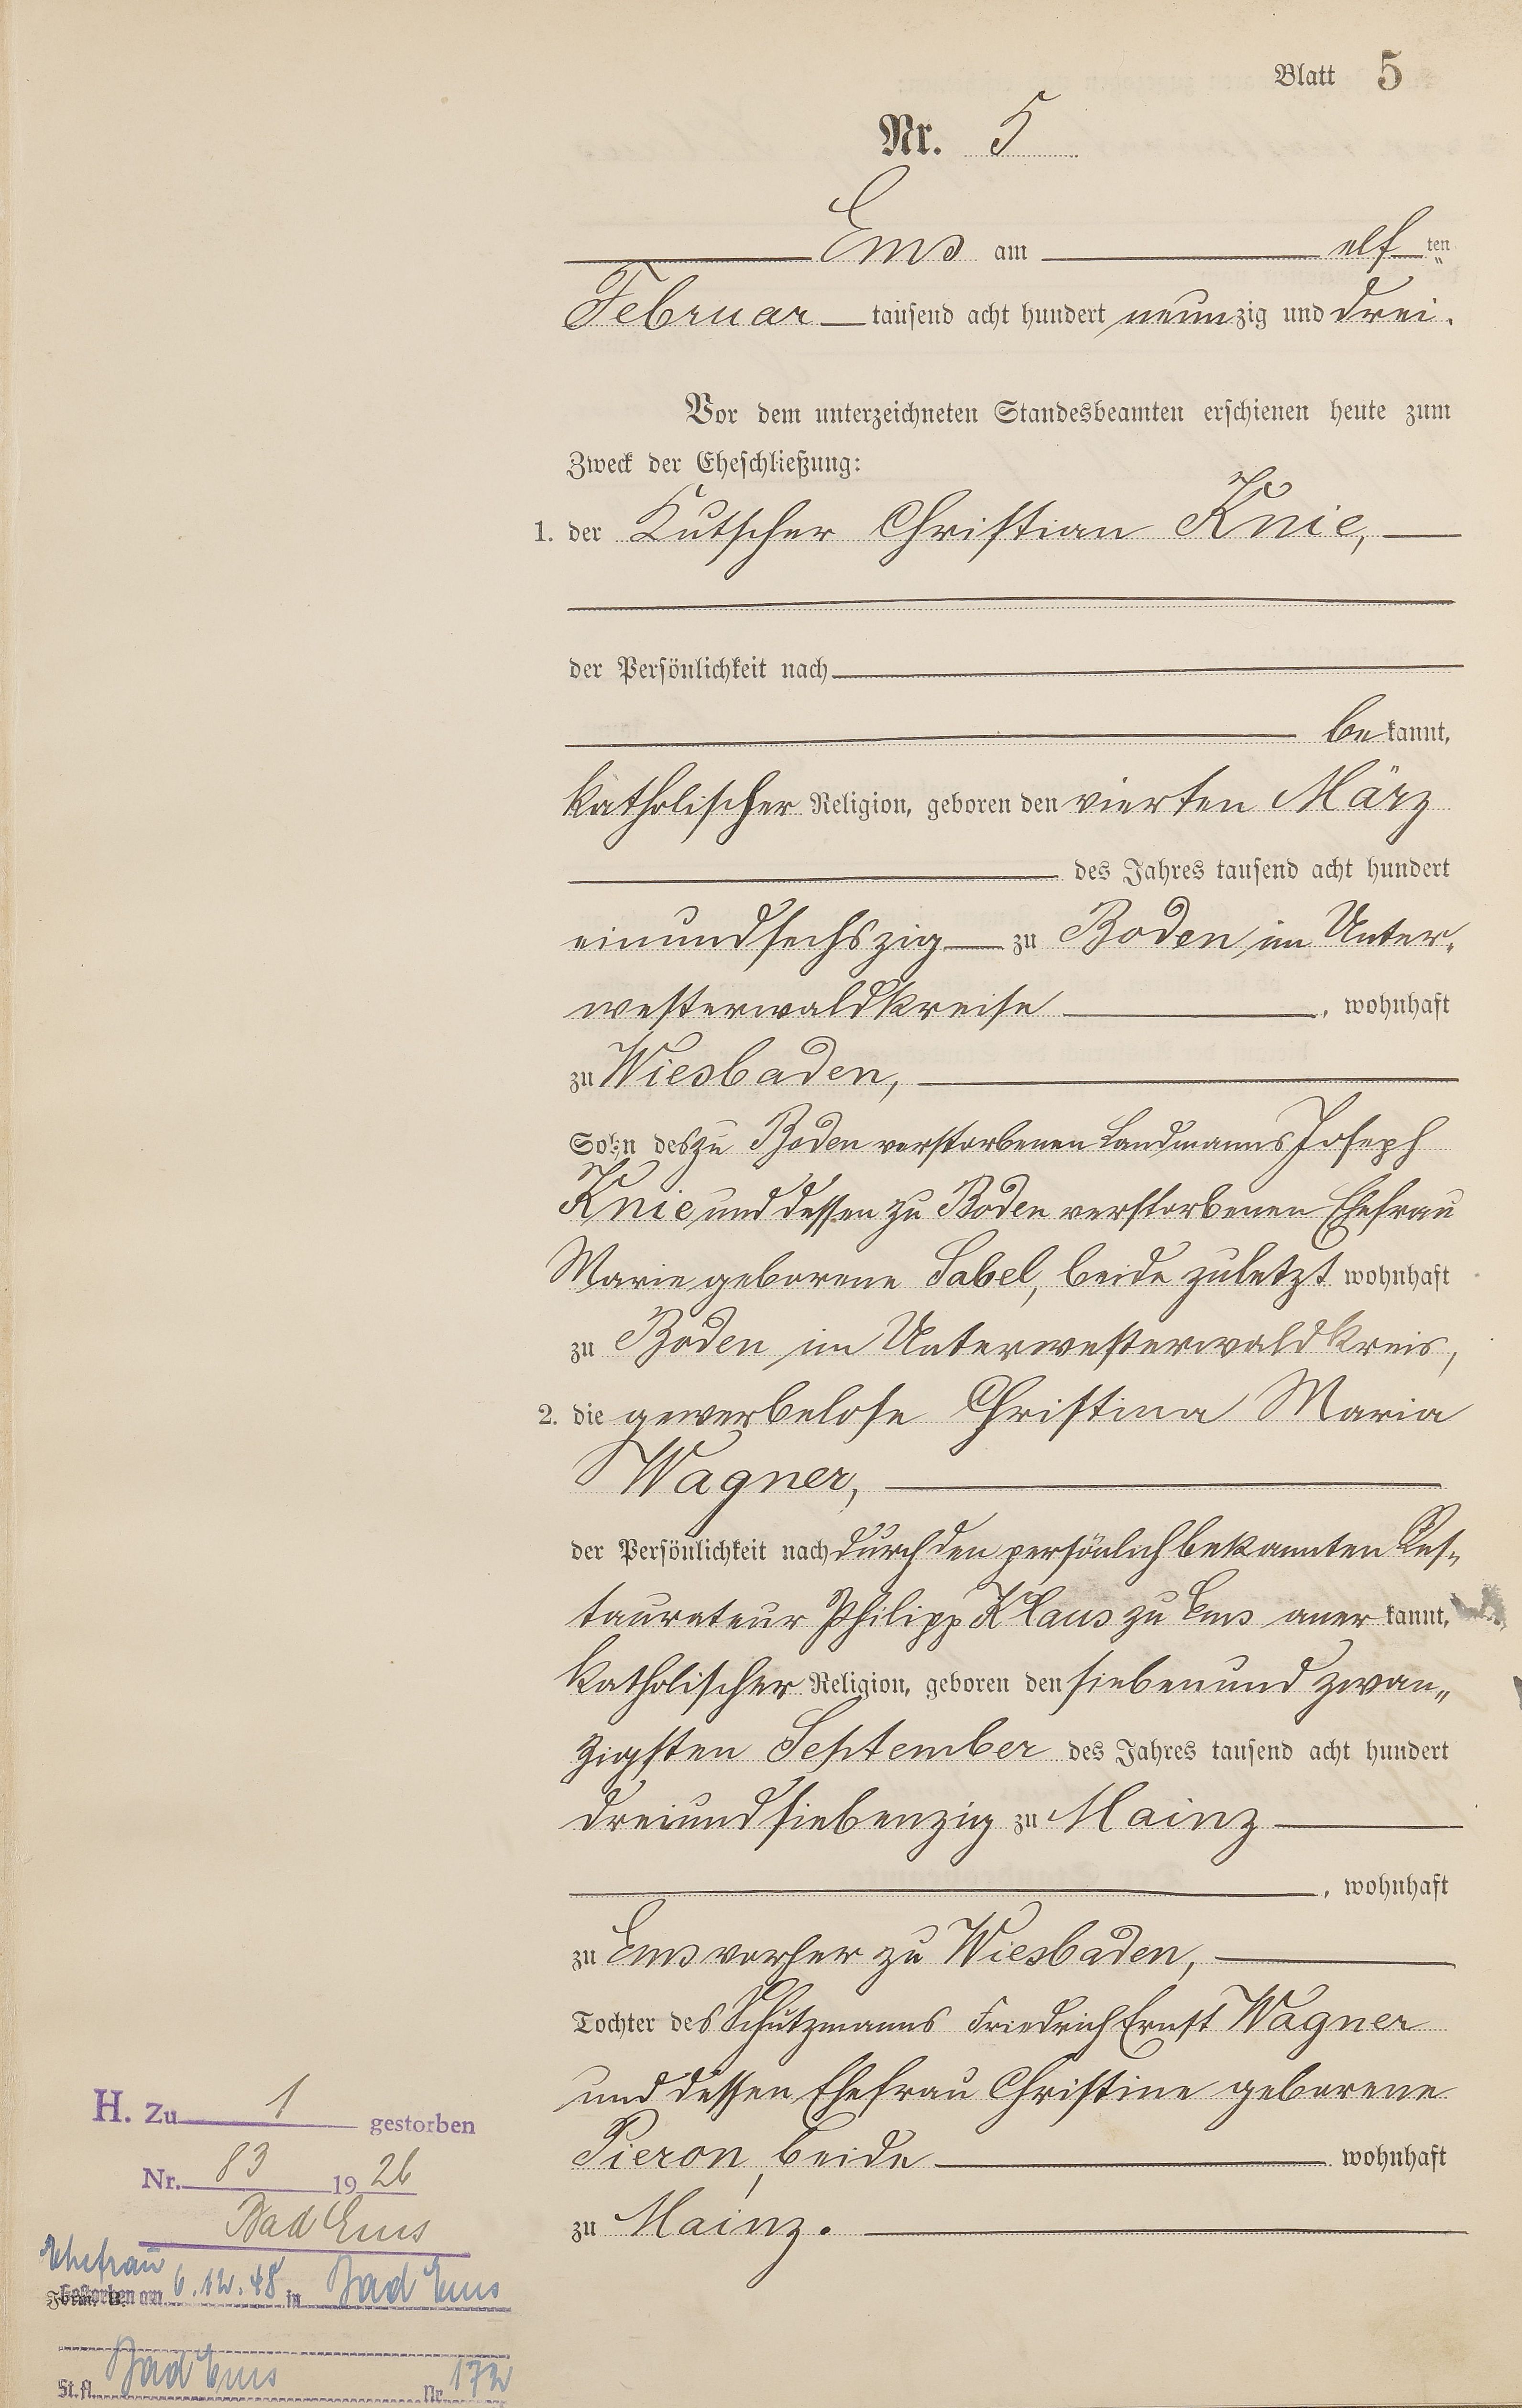 Blatt 5
Nr. 5
Ems am elf ten
Februar tausend acht hundert neunzig und drei.
Vor dem unterzeichneten Standesbeamten erschienen heute zum
Zweck der Eheschließung:
1. der Kutscher Christian Knie,
der Persönlichkeit nach
be kannt,
katholischer Religion, geboren den vierten März
des Jahres tausend acht hundert
einundsechszig zu Boden im Unter-
westerwaldkreise, wohnhaft
zu Wiesbaden,
Sohn des zu Boden verstorbenen Landmanns Joseph
Knie und dessen zu Boden verstorbenen Ehefrau
Marie geborene Sabel, beide zuletzt wohnhaft
zu Boden im Unterwesterwaldkreis,
2. die gewerbelose Christina Maria
Wagner,
der Persönlichkeit nach durch den persönlich bekannten Res-
taurateur Philipp Klaus zu Ems aner kannt,
katholischer Religion, geboren den siebenund zwan-
zigsten September des Jahres tausend acht hundert
dreiundsiebenzig zu Mainz
, wohnhaft
zu Ems vorher zu Wiesbaden,
Tochter des Schutzmanns Friedrich Ernst Wagner
und dessen Ehefrau Christine geborene
Pieron, beide wohnhaft
zu Mainz.
H. Zu 1 gestorben
Nr. 83 1926
Bad Ems
Ehefrau
Gestorben am 6.12.48 in Bad Ems
Bad Ems
St.A. Nr. 172